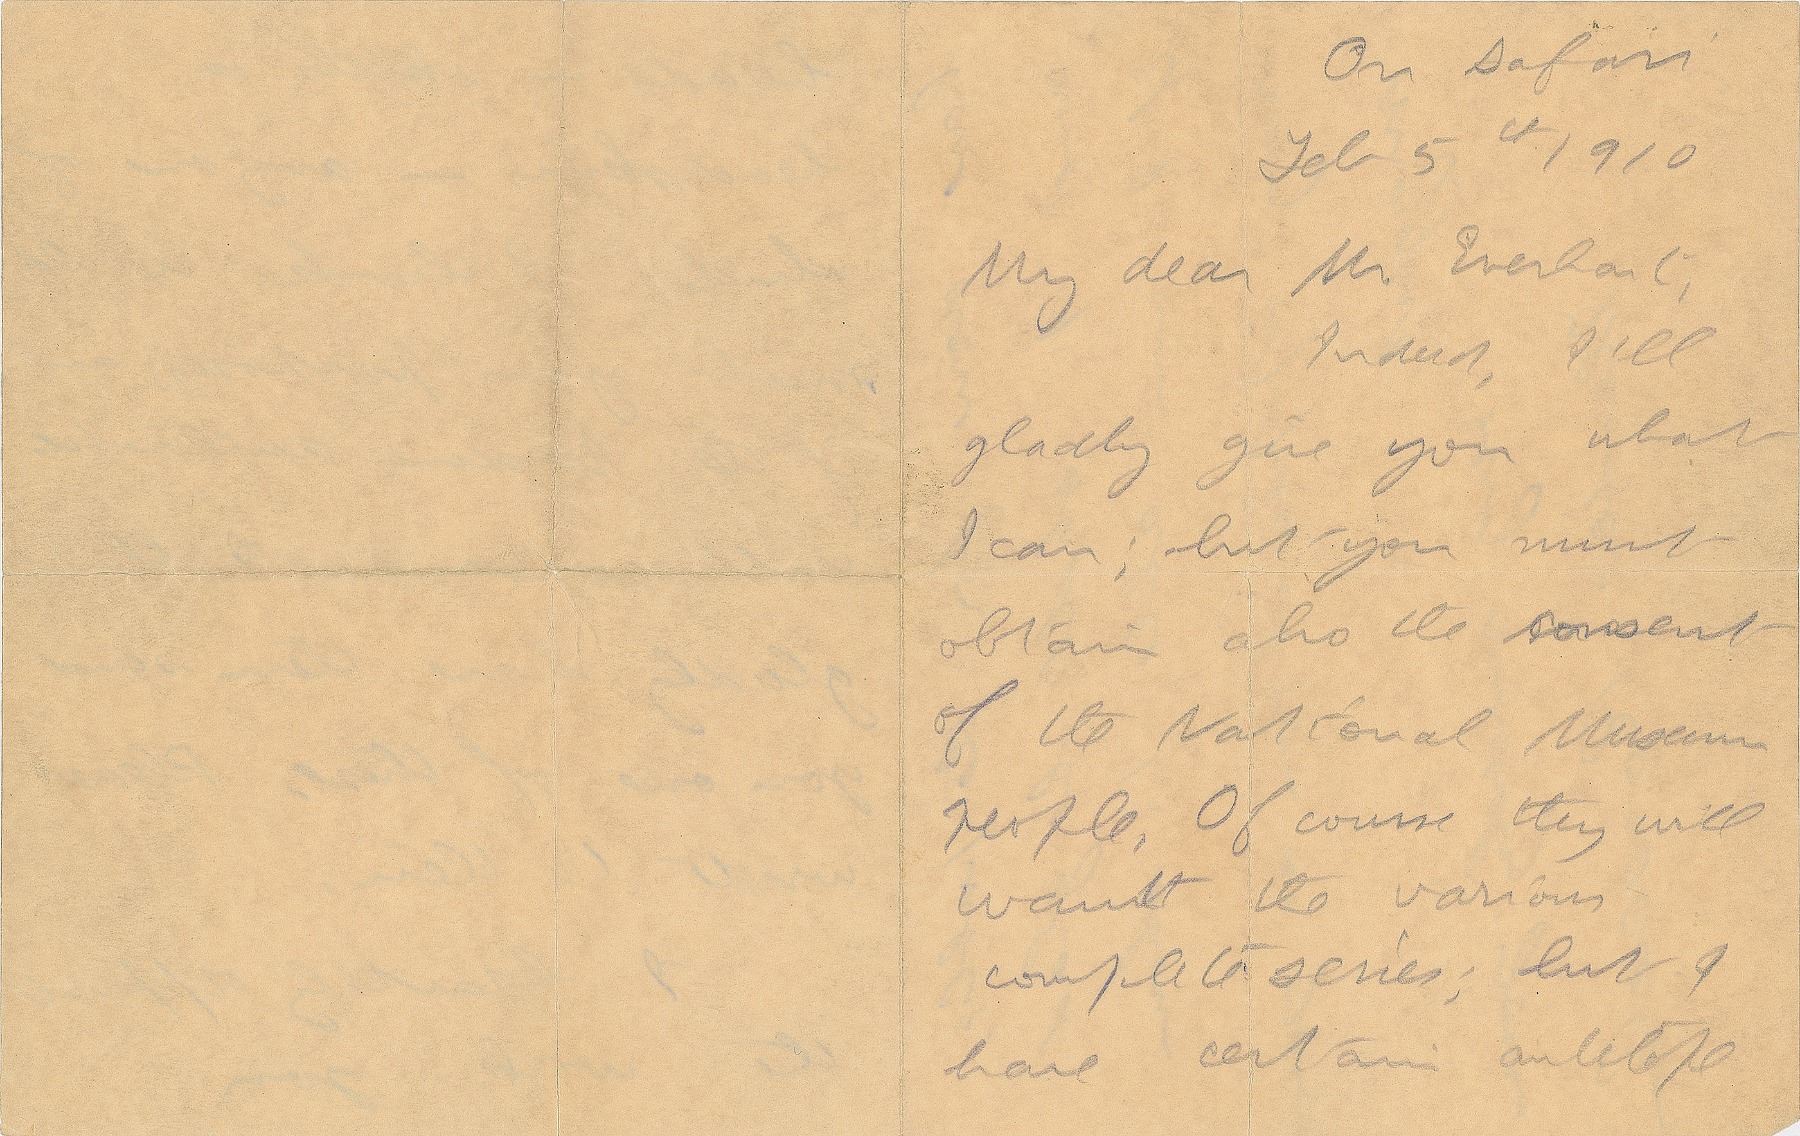 On Safari
Feb 5th 1910
My dear Mr. Everhart,
Indeed, I'll
gladly give you what
I can; but you must
obtain also the consent
of the National Museum
people. Of course they will
want the various
complete series; but I
have certain antelope